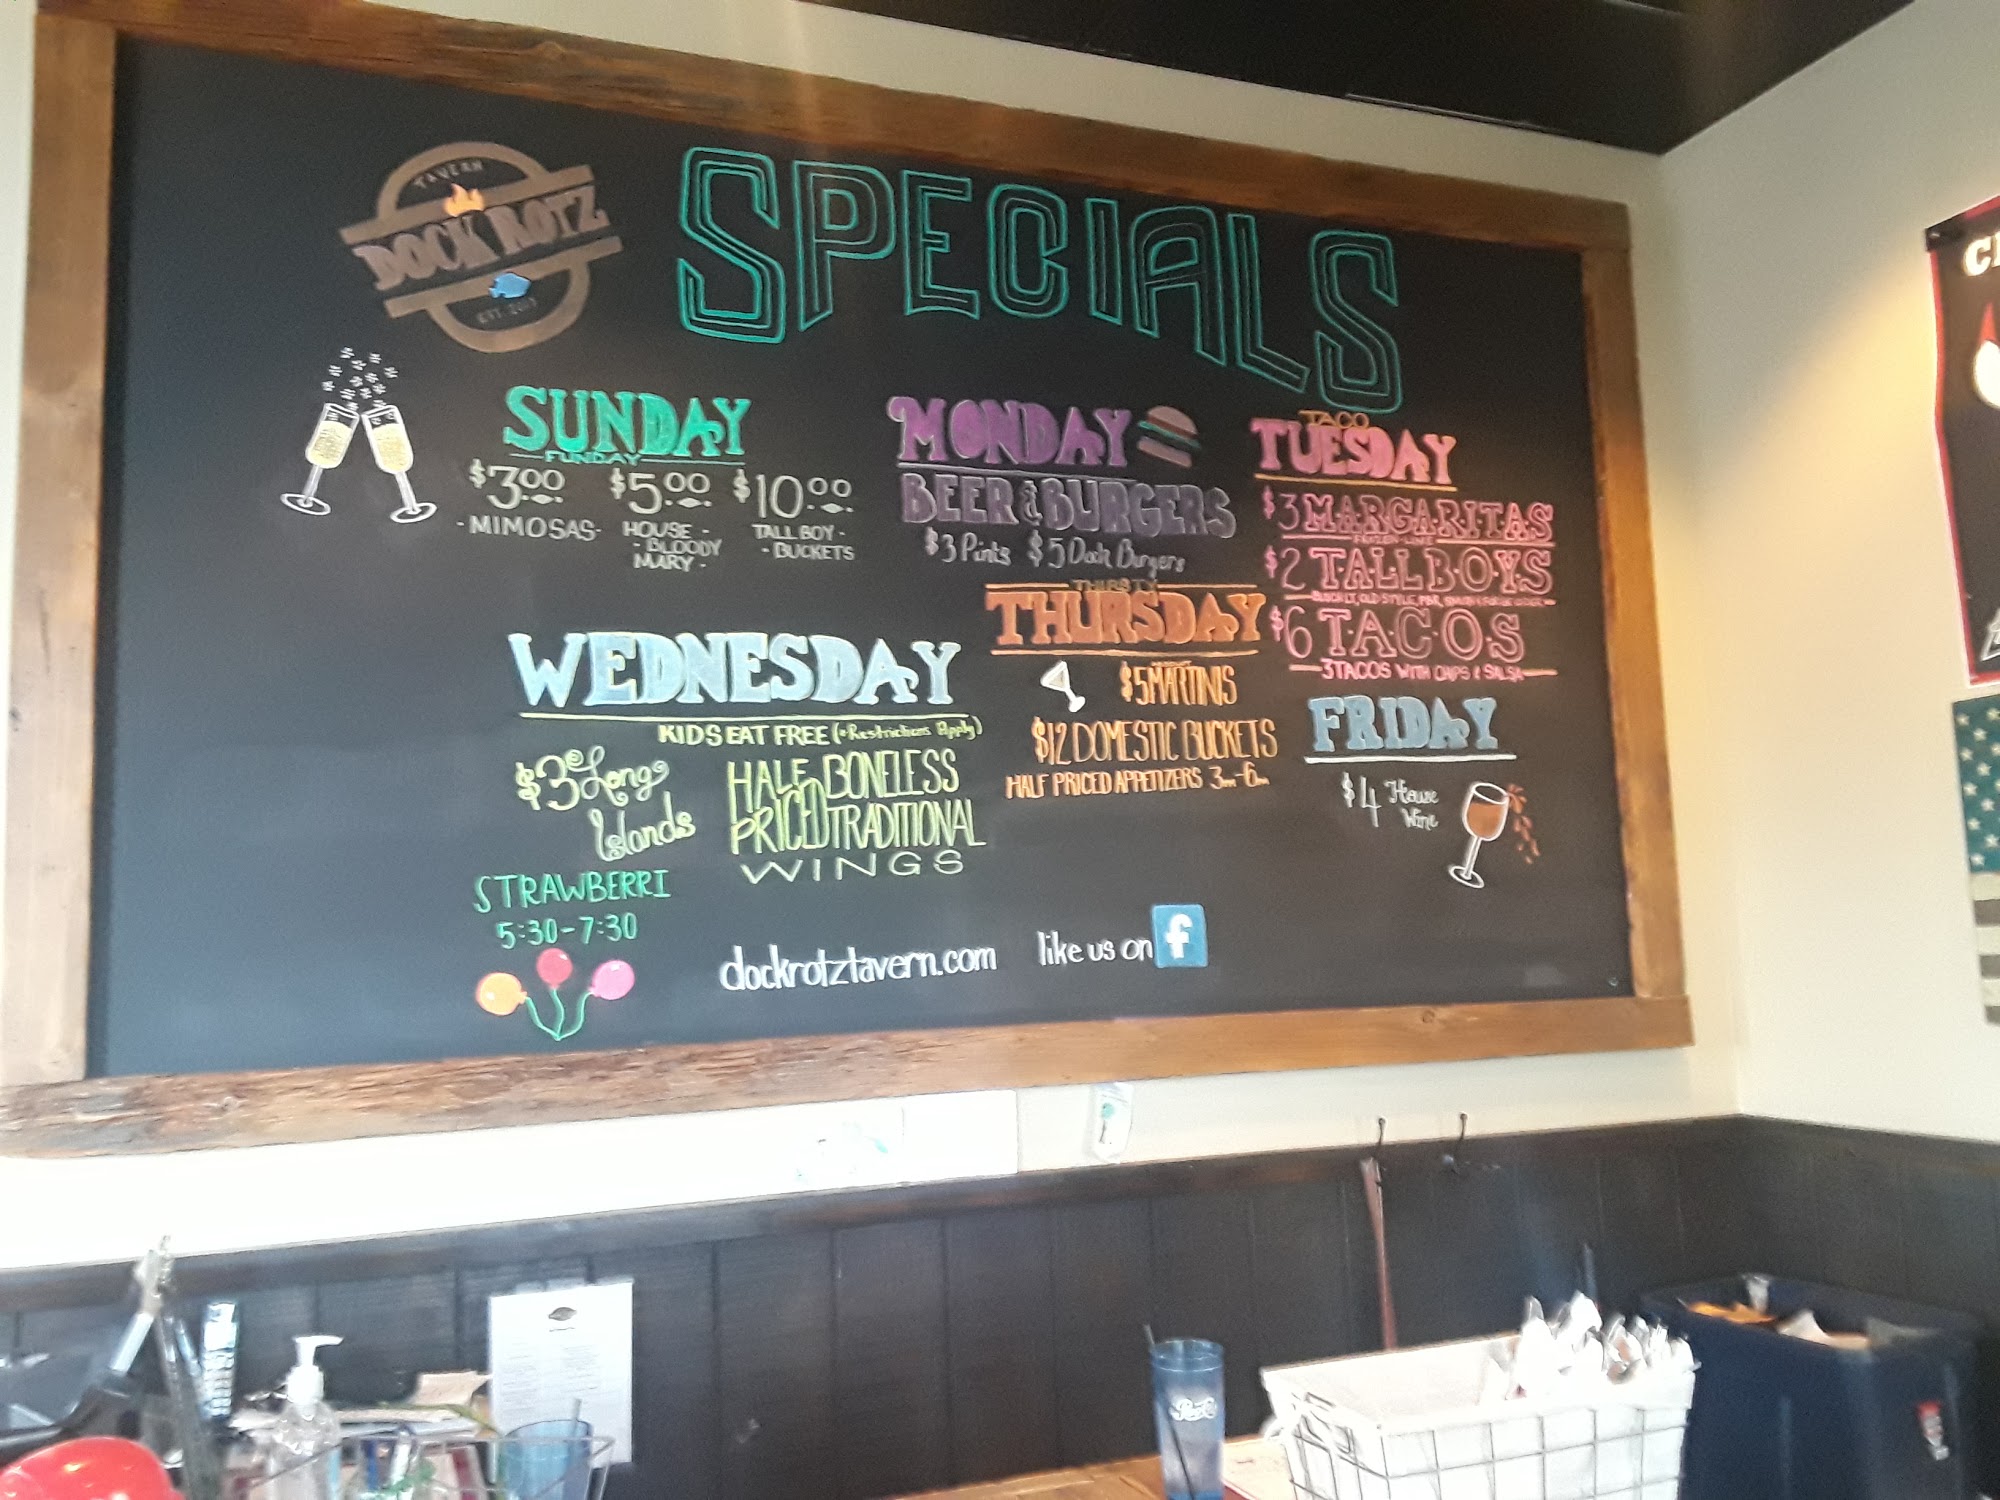 TAVERN
DOCK ROTZ
EST. 2017
SPECIALS
SUNDAY
FUNDAY
$3.00 $5.00 $10.00
-MIMOSAS-
HOUSE -
- BLOODY
MARY -
TALL BOY -
- BUCKETS
MONDAY
BEER & BURGERS
$3 Pints $5 Dock Burgers
TACO
TUESDAY
$3 MARGARITAS
FROZEN-LIME
$2 TALL BOYS
BUSCH LT, OLD STYLE, PBR,
$6 TACOS
3 TACOS WITH CHIPS & SALSA
WEDNESDAY
KIDS EAT FREE (*Restrictions Apply)
$3 Long
Islands
HALF PRICED
BONELESS
TRADITIONAL
WINGS
STRAWBERRI
5:30-7:30
THIRSTY
THURSDAY
$5 MARTINIS
$12 DOMESTIC BUCKETS
HALF PRICED APPETIZERS 3pm-6pm
FRIDAY
$4 House
Wine
dockrotztavern.com
like us on f